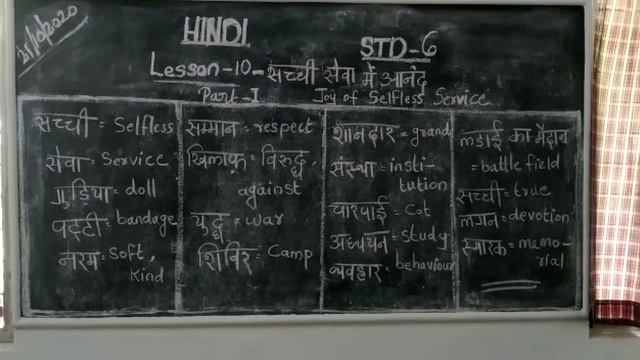 21/10/2020
HINDI
STD-6
Lesson-10-सच्ची सेवा में आनंद
Part-I Joy of Selfless Service
सच्ची = Selfless
सेवा = Service
गुड़िया = doll
पट्टी = bandage
नरम = Soft,
Kind
सम्मान = respect
खिलाफ़ = विरुद्ध,
against
युद्ध = war
शिविर = Camp
शानदार = grand
संस्था = insti-
tution
चारपाई = Cot
अध्ययन = study
व्यवहार = behaviour
लडाई का मैदान
= battle field
सच्ची = true
लगन = devotion
स्मारक = memo-
rial